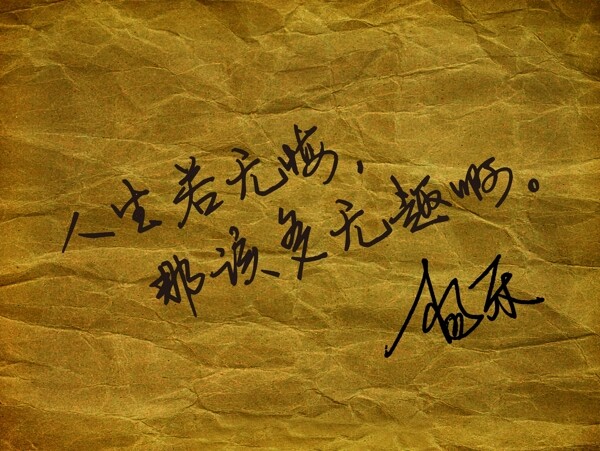 人生若无悔，
那该多无趣啊。